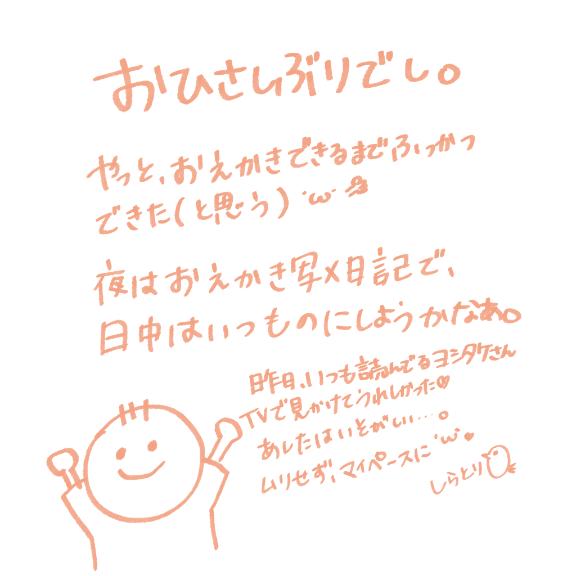 おひさしぶりでし。
やっと、おえかきできるまでふっかつ
できた(と思う)´ω`
夜はおえかき写メ日記で、
日中はいつものにしようかなぁ。
昨日、いつも読んでるヨシタケさん
TVで見かけてうれしかった♡
あしたはいそがしい…。
ムリせず、マイペースに´ω`♥
しらとり